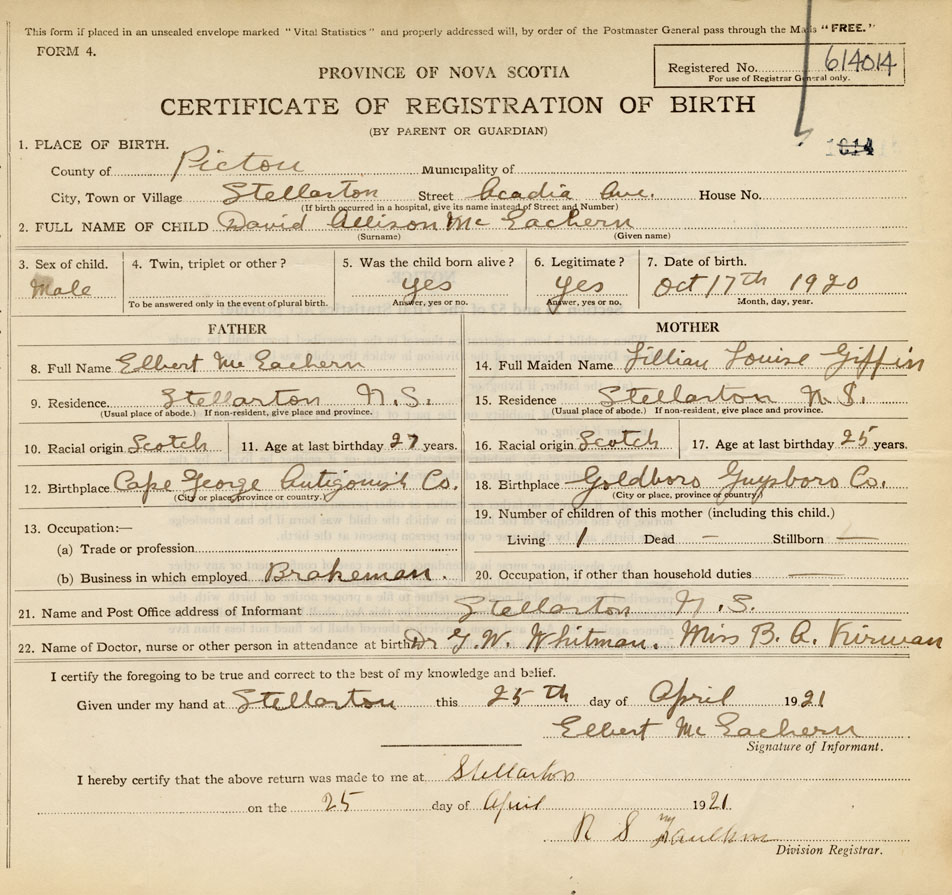 This form if placed in an unsealed envelope marked "Vital Statistics" and properly addressed will, by order of the Postmaster General pass through the Mails "FREE."
FORM 4.
Registered No. 614014
For use of Registrar General only.
PROVINCE OF NOVA SCOTIA
CERTIFICATE OF REGISTRATION OF BIRTH
(BY PARENT OR GUARDIAN)
1. PLACE OF BIRTH.
1614
County of Pictou Municipality of
City, Town or Village Stellarton Street Acadia Ave. House No.
(If birth occurred in a hospital, give its name instead of Street and Number)
2. FULL NAME OF CHILD David Allison McEachern
(Surname) (Given name)
3. Sex of child. 4. Twin, triplet or other? 5. Was the child born alive? 6. Legitimate? 7. Date of birth.
Male yes yes Oct 17th 1920
To be answered only in the event of plural birth. Answer, yes or no. Answer, yes or no. Month, day, year.
FATHER
8. Full Name Elbert McEachern
9. Residence Stellarton N.S.
(Usual place of abode.) If non-resident, give place and province.
10. Racial origin Scotch 11. Age at last birthday 27 years.
12. Birthplace Cape George Antigonish Co.
(City or place, province or country.)
13. Occupation:—
(a) Trade or profession
(b) Business in which employed Brakeman.
MOTHER
14. Full Maiden Name Lillian Louise Giffin
15. Residence. Stellarton N.S.
(Usual place of abode.) If non-resident, give place and province.
16. Racial origin Scotch 17. Age at last birthday 25 years.
18. Birthplace Goldboro Guysboro Co.
(City or place, province or country)
19. Number of children of this mother (including this child.)
Living 1 Dead — Stillborn —
20. Occupation, if other than household duties —
21. Name and Post Office address of Informant Stellarton N.S.
22. Name of Doctor, nurse or other person in attendance at birth Dr G.W. Whitman. Miss B. A. Kirwan
I certify the foregoing to be true and correct to the best of my knowledge and belief.
Given under my hand at Stellarton this 25th day of April 1921
Elbert McEachern
Signature of Informant.
I hereby certify that the above return was made to me at Stellarton
on the 25 day of April 1921.
R S
Division Registrar.